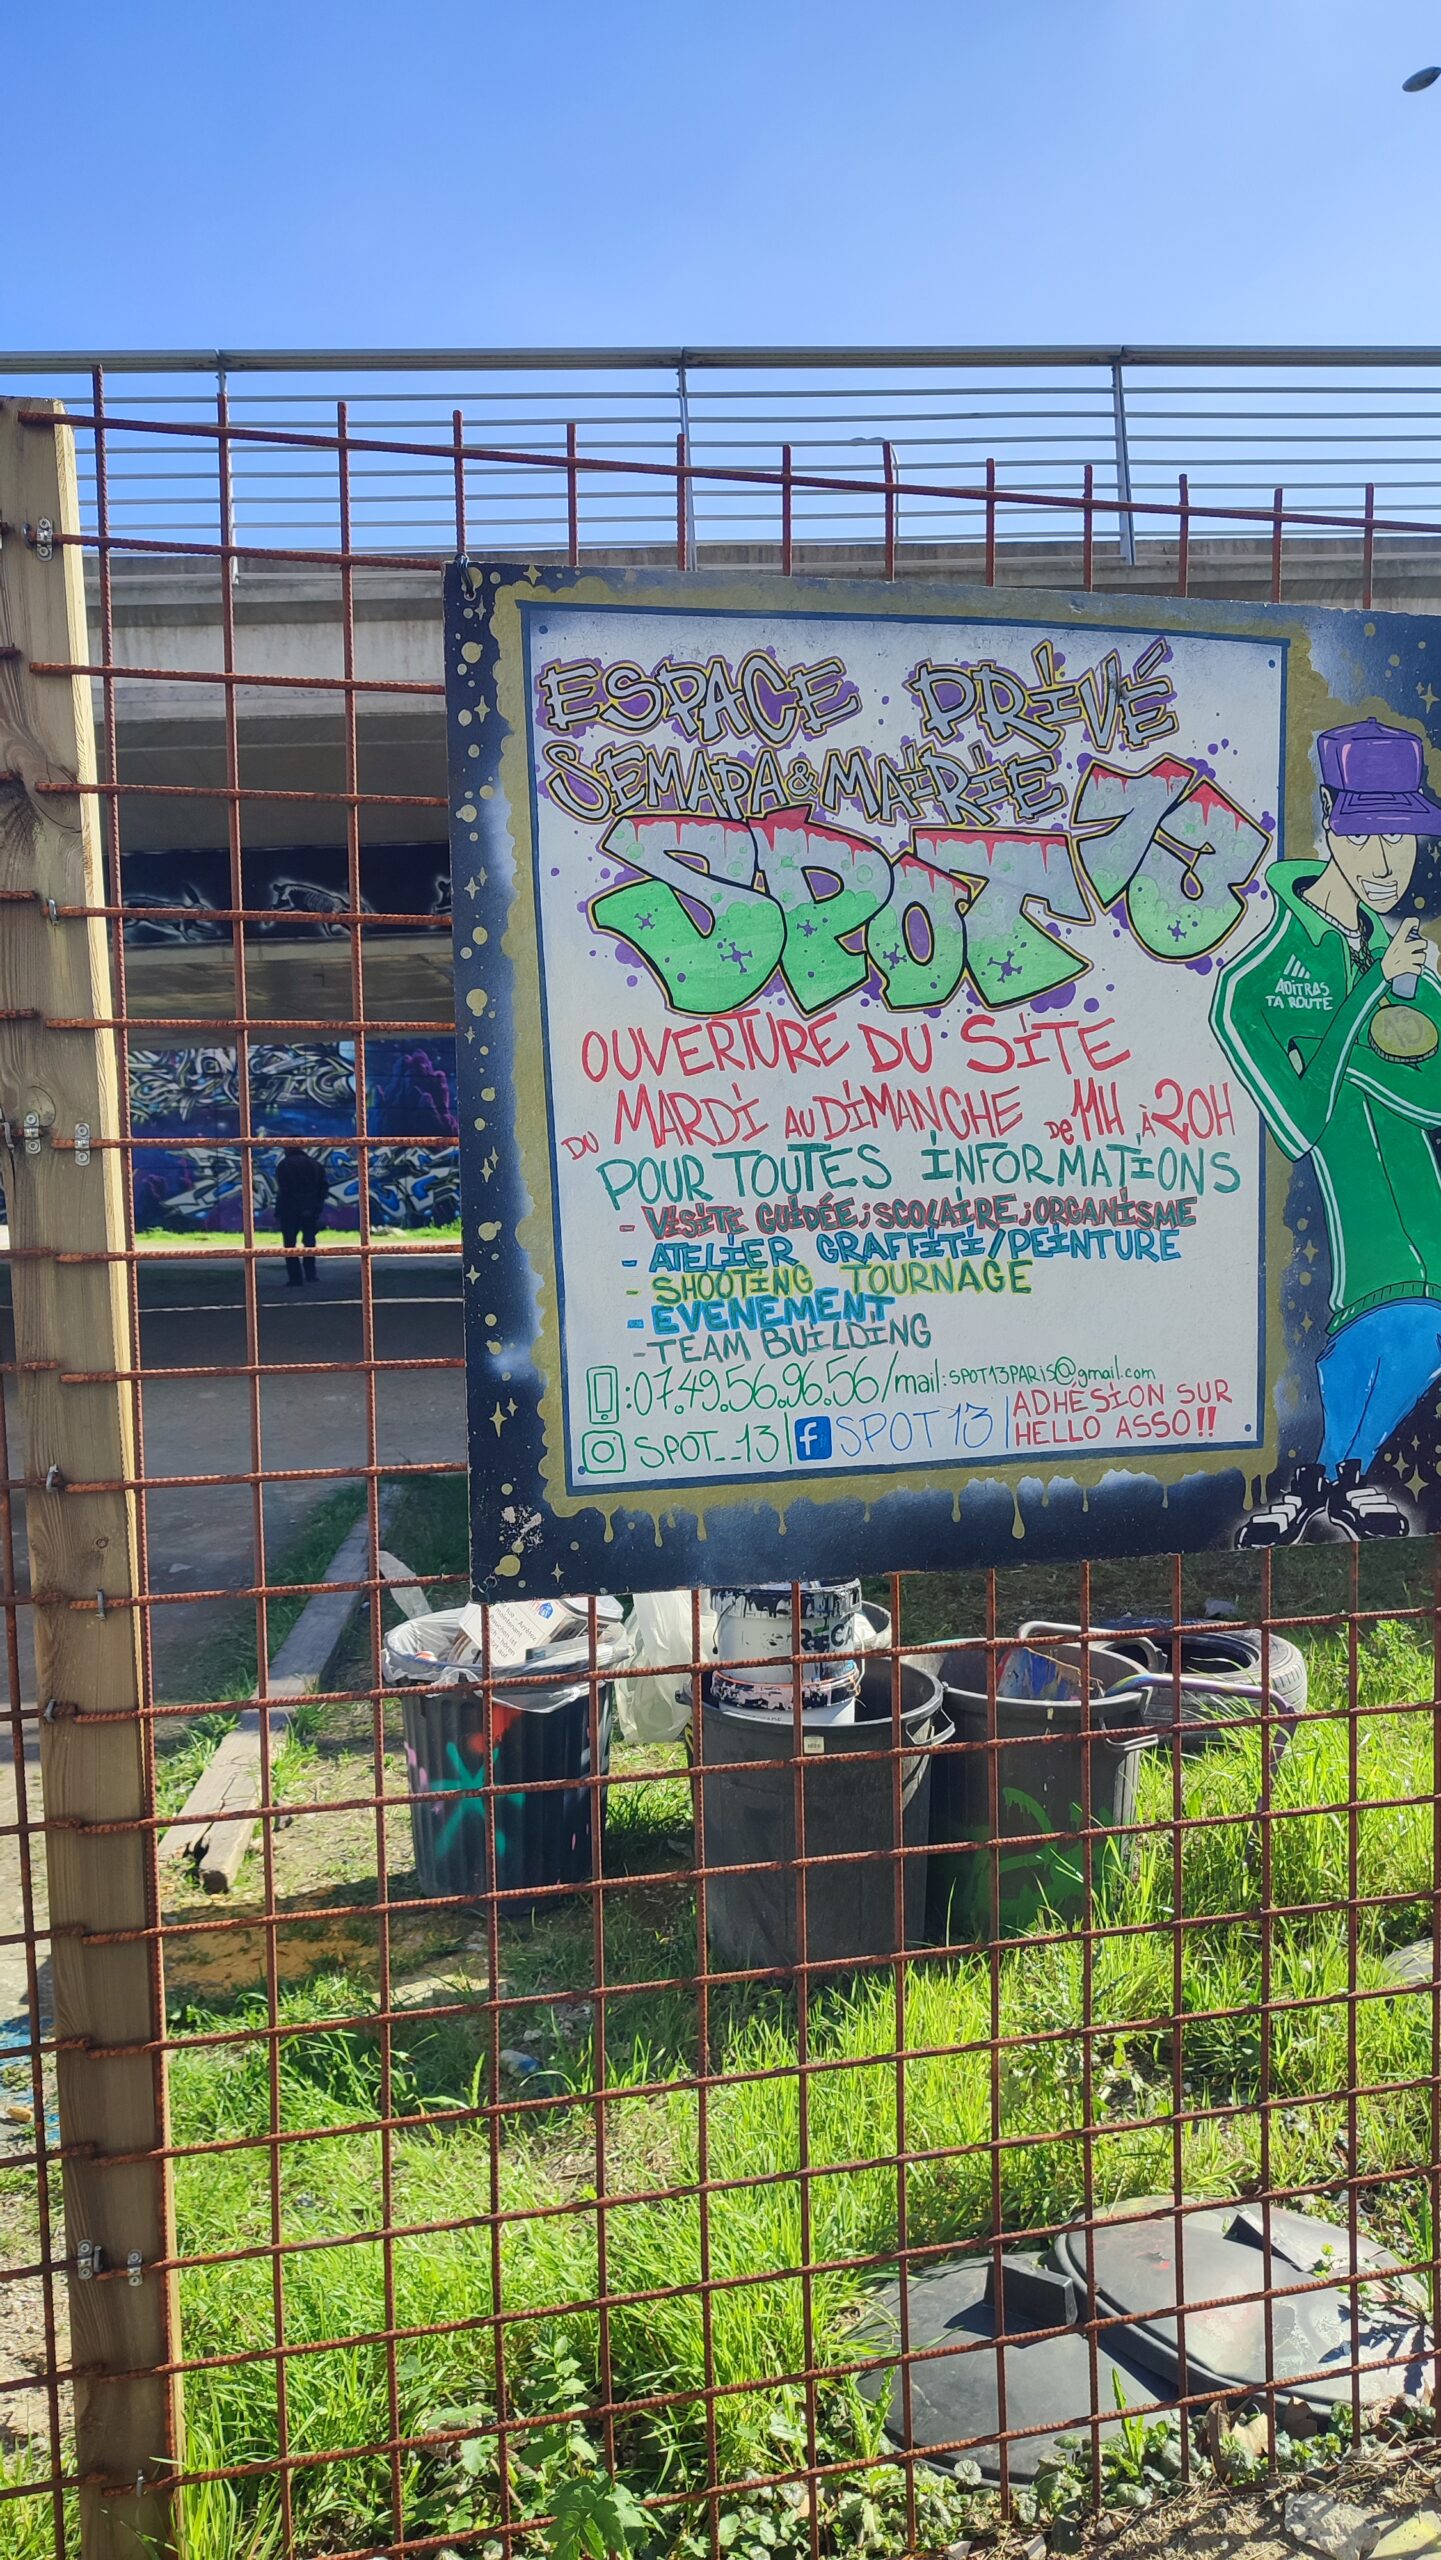 ESPACE PRIVÉ
SEMAPA & MAIRIE
SPOT 13
ADITRAS
TA ROUTE
OUVERTURE DU SITE
DU MARDI AU DIMANCHE De 11H À 20H
POUR TOUTES INFORMATIONS
- VISITE GUIDÉE; SCOLAIRE; ORGANISME
- ATELIER GRAFFITI/PEINTURE
- SHOOTING TOURNAGE
- EVENEMENT
- TEAM BUILDING
:07.49.56.96.56/mail:SPOT13PARIS@gmail.com
SPOT__13| f SPOT 13 |ADHÉSION SUR
HELLO ASSO!!